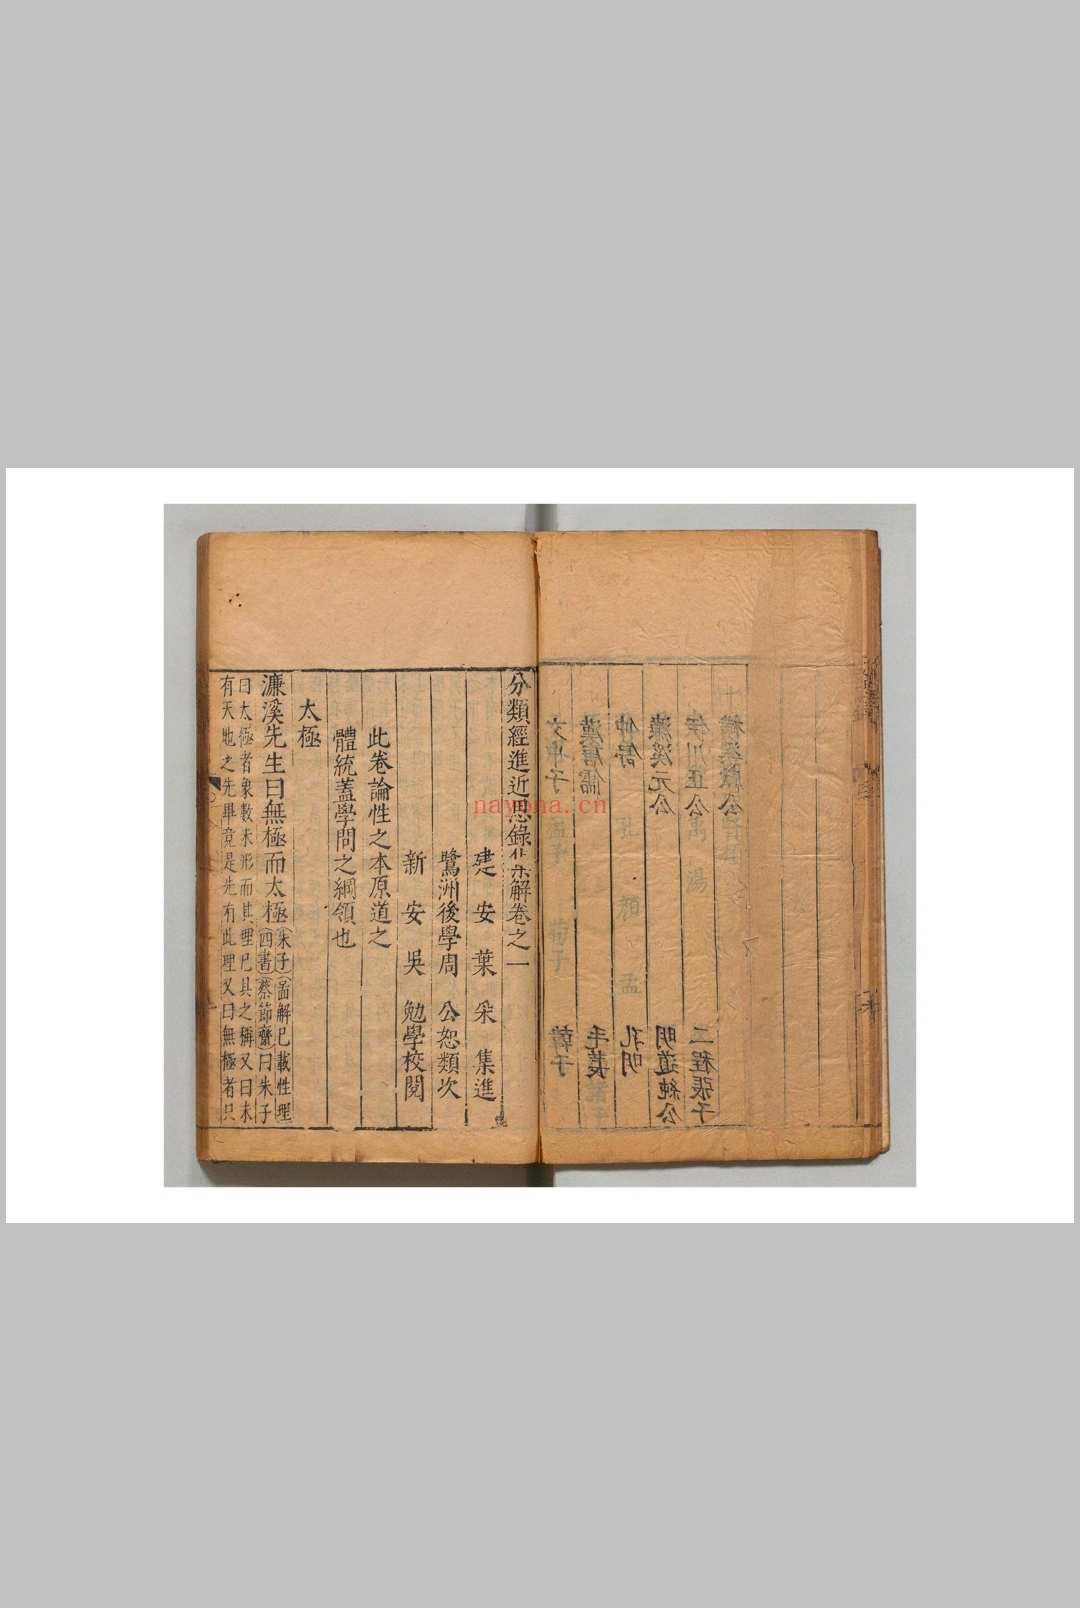 分類經進近思錄集解卷之一
建安葉采集進
鷺洲後學周公恕類次
新安吳勉學校閱
此卷論性之本原道之
體統蓋學問之綱領也
太極
濂溪先生曰無極而太極
朱子圖解已載性理
四書蔡節齋曰朱子
曰太極者象數未形而其理已具之稱又曰未
有天地之先畢竟是先有此理又曰無極者只
nayona.cn
橫渠獻公
二程張子
伊川正公
明道純公
濂溪元公
孔明
仲舒
毛萇
漢唐儒
韓子
文中子